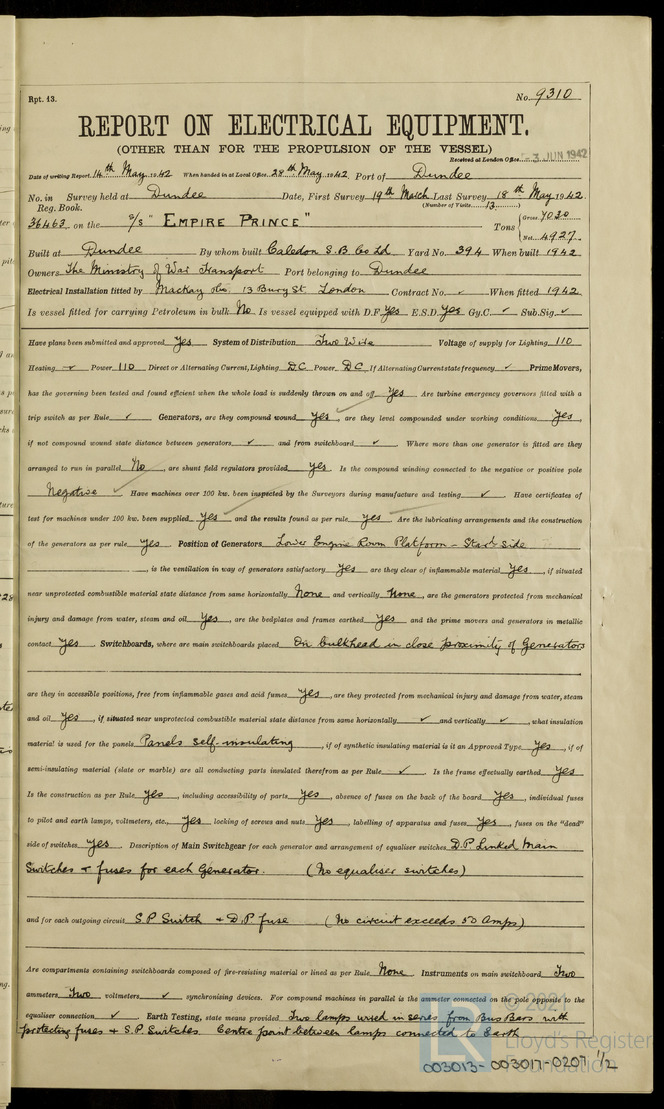 Rpt. 13.
No. 9310
REPORT ON ELECTRICAL EQUIPMENT.
(OTHER THAN FOR THE PROPULSION OF THE VESSEL)
Received at London Office 3 JUN 1942
Date of writing Report 14th May 1942 When handed in at Local Office 28th May 1942 Port of Dundee
No. in Survey held at Dundee Date, First Survey 19th March Last Survey 18th May 1942
Reg. Book. (Number of Visits 13)
36463 on the S/S "EMPIRE PRINCE" Tons Gross 7030
Net 4927
Built at Dundee By whom built Caledon S.B. Co Ld Yard No. 394 When built 1942
Owners The Ministry of War Transport Port belonging to Dundee
Electrical Installation fitted by Mackay 13 Bury St. London Contract No. ✓ When fitted 1942
Is vessel fitted for carrying Petroleum in bulk No Is vessel equipped with D.F. Yes E.S.D. Yes Gy.C. ✓ Sub.Sig. ✓
Have plans been submitted and approved Yes System of Distribution Two Wire Voltage of supply for Lighting 110
Heating ✓ Power 110 Direct or Alternating Current, Lighting D.C. Power D.C. If Alternating Current state frequency ✓ Prime Movers,
has the governing been tested and found efficient when the whole load is suddenly thrown on and off Yes Are turbine emergency governors fitted with a
trip switch as per Rule ✓ Generators, are they compound wound Yes, are they level compounded under working conditions Yes,
if not compound wound state distance between generators ✓ and from switchboard ✓ Where more than one generator is fitted are they
arranged to run in parallel No, are shunt field regulators provided Yes Is the compound winding connected to the negative or positive pole
Negative ✓ Have machines over 100 kw. been inspected by the Surveyors during manufacture and testing ✓ Have certificates of
test for machines under 100 kw. been supplied Yes and the results found as per rule Yes Are the lubricating arrangements and the construction
of the generators as per rule Yes Position of Generators Lower Engine Room Platform - Starb Side
, is the ventilation in way of generators satisfactory Yes are they clear of inflammable material Yes, if situated
near unprotected combustible material state distance from same horizontally None and vertically None, are the generators protected from mechanical
injury and damage from water, steam and oil Yes, are the bedplates and frames earthed Yes and the prime movers and generators in metallic
contact Yes Switchboards, where are main switchboards placed On bulkhead in close proximity of Generators
are they in accessible positions, free from inflammable gases and acid fumes Yes, are they protected from mechanical injury and damage from water, steam
and oil Yes, if situated near unprotected combustible material state distance from same horizontally ✓ and vertically ✓, what insulation
material is used for the panels Panels self-insulating, if of synthetic insulating material is it an Approved Type Yes, if of
semi-insulating material (slate or marble) are all conducting parts insulated therefrom as per Rule ✓ Is the frame effectually earthed Yes
Is the construction as per Rule Yes, including accessibility of parts Yes, absence of fuses on the back of the board Yes, individual fuses
to pilot and earth lamps, voltmeters, etc., Yes locking of screws and nuts Yes, labelling of apparatus and fuses Yes, fuses on the "dead"
side of switches Yes Description of Main Switchgear for each generator and arrangement of equaliser switches D.P. Linked Main
Switches + fuses for each Generator. (No equaliser switches)
and for each outgoing circuit S.P Switch + D.P fuse (No circuit exceeds 50 Amps)
Are compartments containing switchboards composed of fire-resisting material or lined as per Rule None Instruments on main switchboard Two
ammeters Two voltmeters ✓ synchronising devices. For compound machines in parallel is the ammeter connected on the pole opposite to the
equaliser connection ✓ Earth Testing, state means provided Two lamps wired in series from Bus Bars with
protecting fuses + S.P. Switches. Centre point between lamps connected to Earth
© 2021
Lloyd's Register
Foundation
003013-003017-0207 1/2